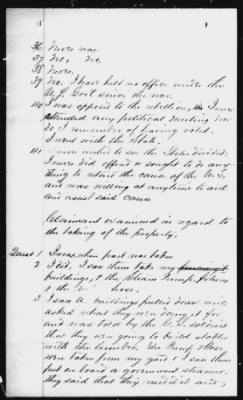 36 Never was.
37 No, No
38 None,
39 No. I have held no office under the
U.S. Govt since the war.
40 I was opposed to the rebellion, I never
attended any political meeting nor
do I remember of having voted.
I went with the State.
41 I never wished to see the States divided.
I never did offered or sought to do any
thing to retard the cause of the U.S.
and was willing at anytime to aid
and assist said cause
Claimant examined in regard to
the taking of the property.
Quest 1 I was, when part was taken
2 I did, I saw them take my
buildings, & the Steam Pump, fixtures
& the hose,
3 I saw the buildings pulled down and
asked what they were doing it for
and was told by the U.S. soldiers
that they were going to build stables
with the lumber. The Pump, Hose
were taken from my yard & I saw them
put on board a government steamer.
they said that they needed it and,